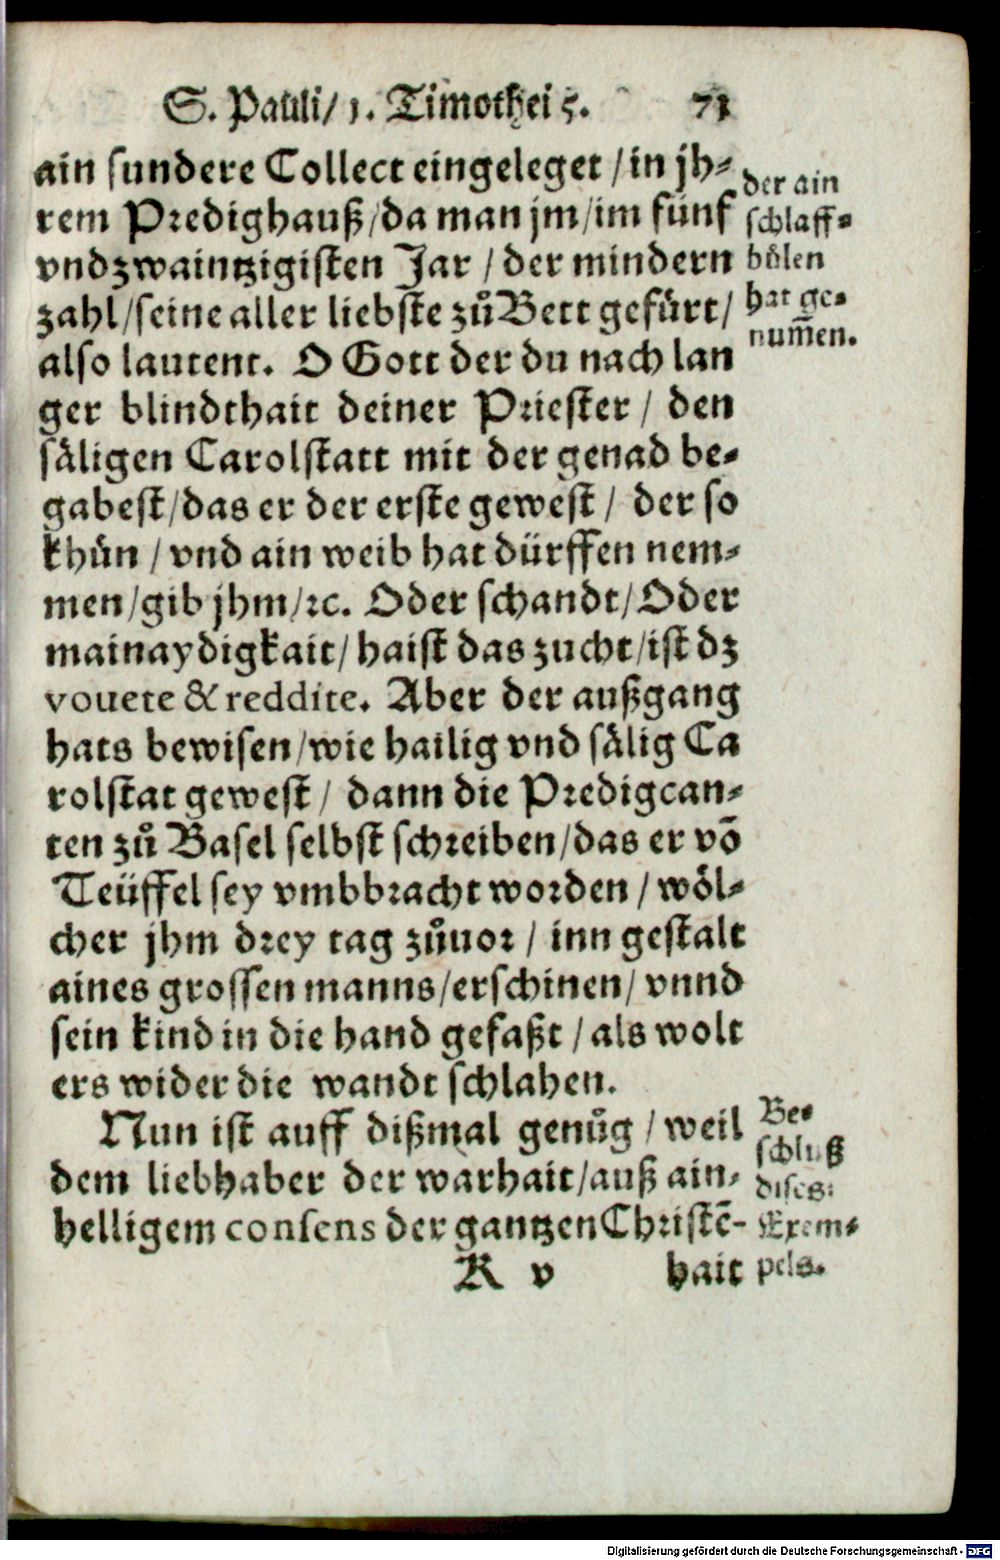 S. Pauli/ 1. Timothei 5. 71
ain sundere Collect eingeleget /in jh-
rem Predighauß/da man jm/im fünf
vndzwaintzigisten Jar / der mindern
zahl/seine aller liebste zů Bett gefürt/
also lautent. O Gott der du nach lan
ger blindthait deiner Priester / den
säligen Carolstatt mit der genad be-
gabest/das er der erste gewest / der so
khün / vnd ain weib hat dürffen nem-
men/gib jhm/ꝛc. Oder schandt/Oder
mainaydigkait/ haist das zucht/ist dz
vouete & reddite. Aber der außgang
hats bewisen/wie hailig vnd sälig Ca
rolstat gewest / dann die Predigcan-
ten zů Basel selbst schreiben/das er võ
Teüffel sey vmbbracht worden / wöl-
cher jhm drey tag zůuor / inn gestalt
aines grossen manns/erschinen/ vnnd
sein kind in die hand gefaßt / als wolt
ers wider die wandt schlahen.
Nun ist auff dißmal genůg / weil
dem liebhaber der warhait/auß ain-
helligem consens der gantzen Christẽ-
K v hait
der ain
schlaff-
bůlen
hat ge-
num̃en.
Be-
schluß
dises
Exem-
pels.
Digitalisierung gefördert durch die Deutsche Forschungsgemeinschaft - DFG